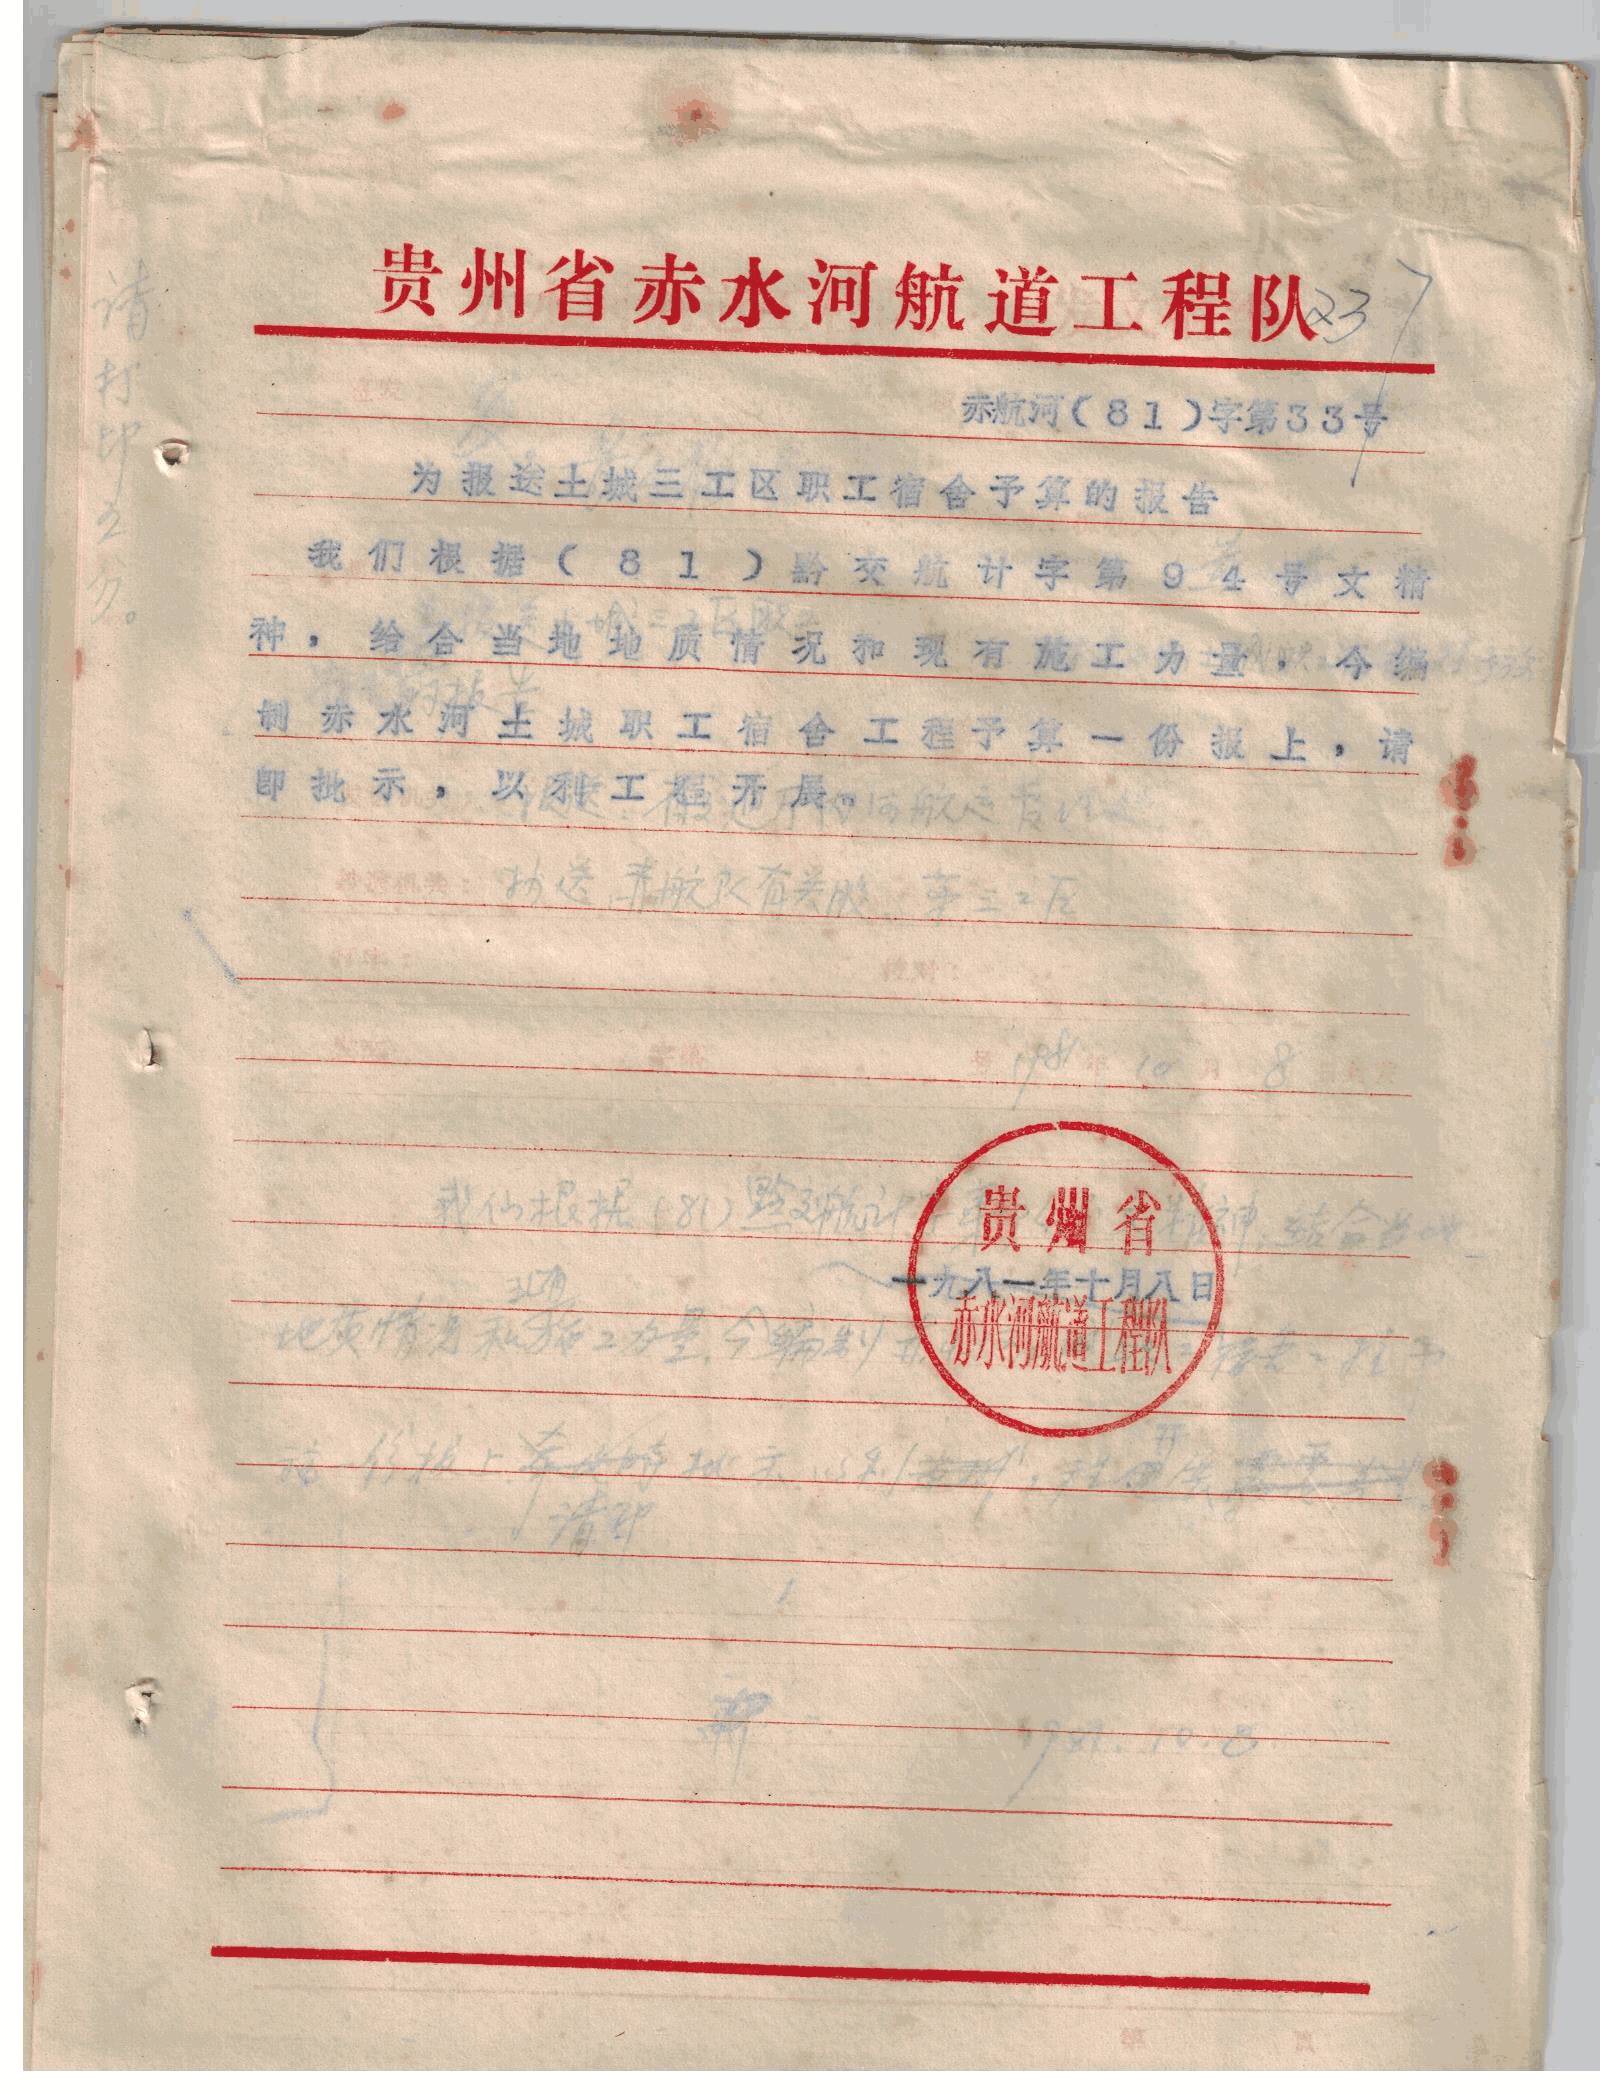 贵州省赤水河航道工程队
23
赤航河(81)字第33号
为报送土城三工区职工宿舍予算的报告
我们根据(81)黔交航计字第94号文精
神,给合当地地质情况和现有施工力量,今编
制赤水河土城职工宿舍工程予算一份报上,请
即批示,以利工程开展。
抄送 赤航队有关股 第三工区
1981年10月8
贵州省
一九八一年十月八日
赤水河航道工程队
我们根据(81)黔交航计
精神,结合当地
地质情况和施工力量,今编制
请即
1981.10.8
请打印2分。